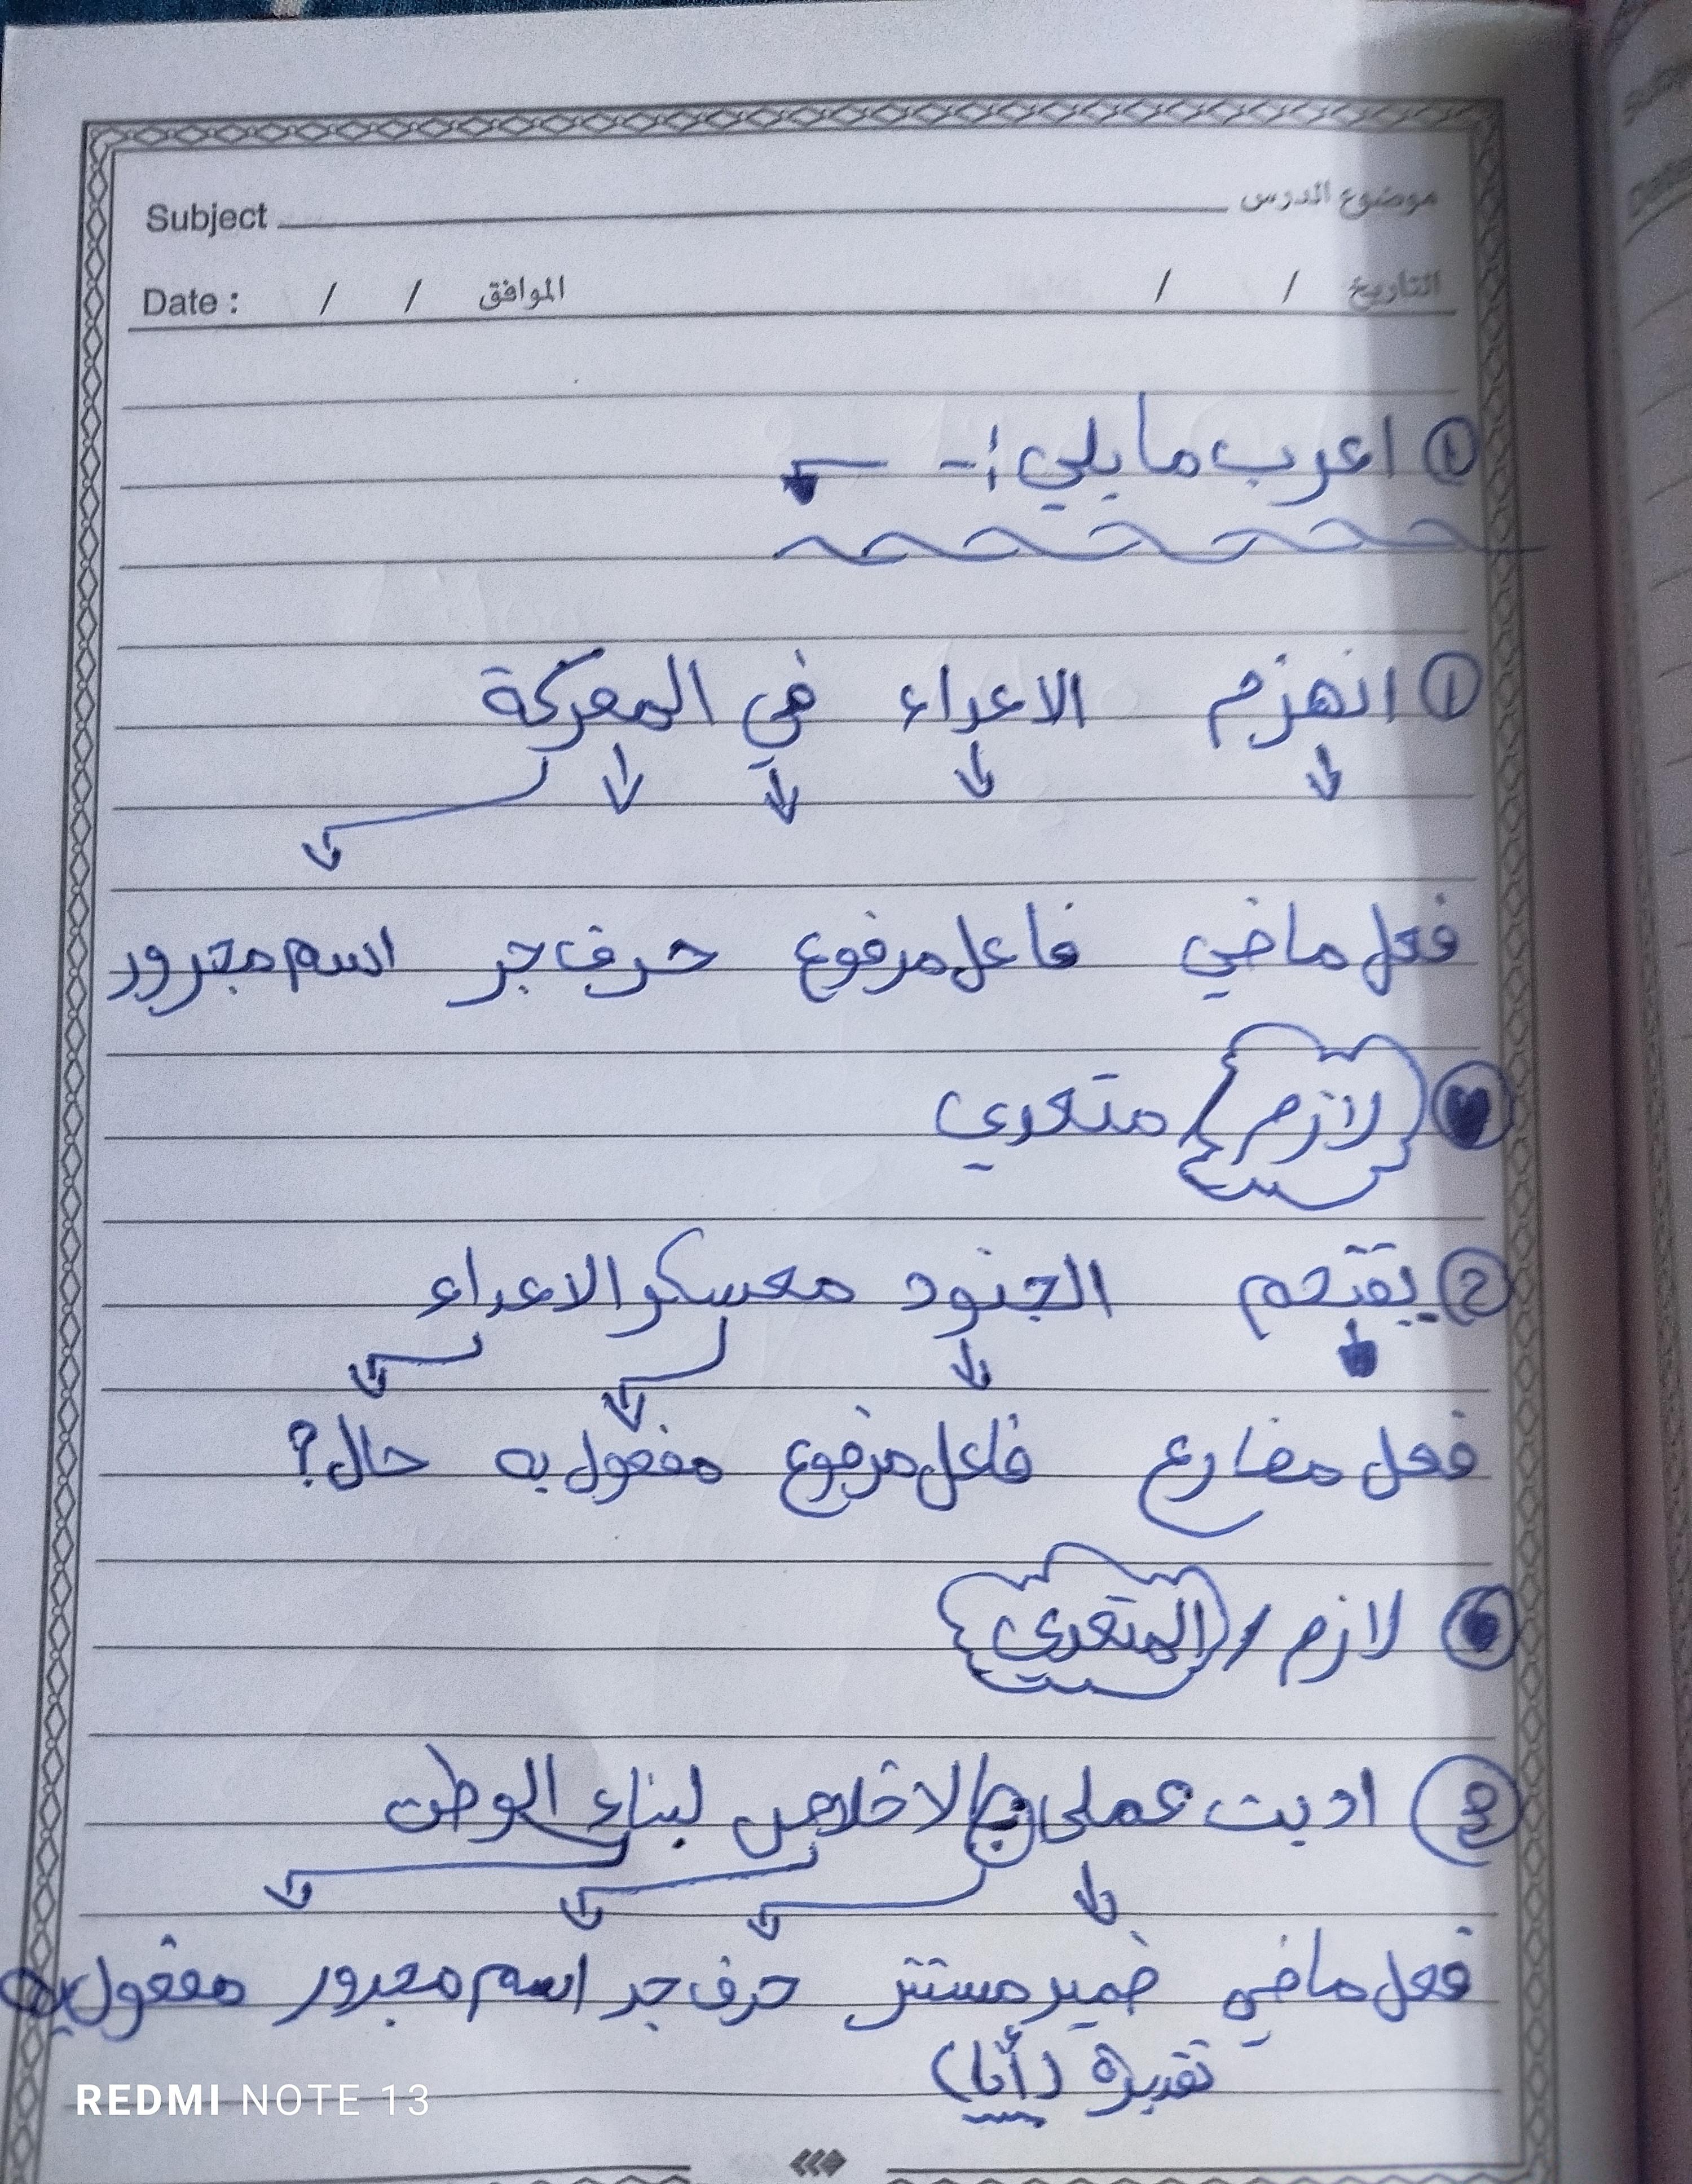 موضوع الدرس Subject
التاريخ / / الموافق / / Date :
① اعرب ما يلي :-
① انهزم الاعداء في المعركة
فعل ماضي فاعل مرفوع حرف جر اسم مجرور
لازم / متعدي
② يقتحم الجنود معسكر الاعداء
فعل مضارع فاعل مرفوع مفعول به حال؟
لازم / المتعدي
③ اديت عملي بالاخلاص لبناء الوطن
فعل ماضي ضمير مستتر حرف جر اسم مجرور مفعول به
تقديرة (أنا)
REDMI NOTE 13